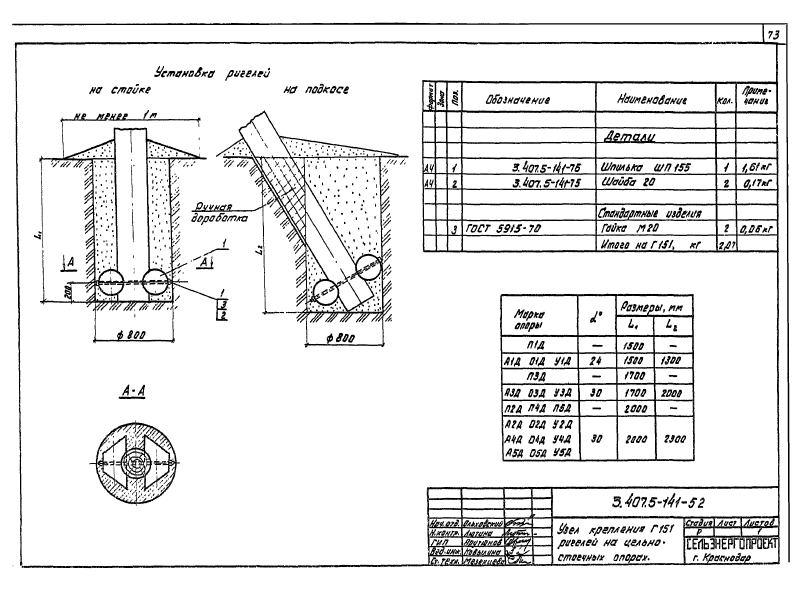 73
Установка ригелей
на стойке
на подкосе
не менее 1 м
L₁
L₂
Ручная
доработка
А
А
200
1
1
3
2
ф 800
ф 800
А-А
Формат Зона Поз. Обозначение Наименование Кол. Приме-
чание
Детали
А4 1 3.407.5-141-76 Шпилька ШП155 1 1,61кг
А4 2 3.407.5-141-75 Шайба 20 2 0,17кг
Стандартные изделия
3 ГОСТ 5915-70 Гайка М20 2 0,06кг
Итого на Г151, кг 2,07
Марка
опоры
α°
Размеры, мм
L₁ L₂
П1Д — 1500 —
А1Д О1Д У1Д 24 1500 1300
П3Д — 1700 —
А3Д О3Д У3Д 30 1700 2000
П2Д П4Д П6Д — 2000 —
А2Д О2Д У2Д
А4Д О4Д У4Д 30 2000 2300
А5Д О5Д У5Д
3.407.5-141-52
Нач.отд. Ольховский
Н.контр. Лютина
ГИП
Вед.инж. Ковылина
Ст.техн.
Узел крепления Г151
ригелей на цельно-
стоечных опорах.
Стадия Лист Листов
Р 1
СЕЛЬЭНЕРГОПРОЕКТ
г. Краснодар